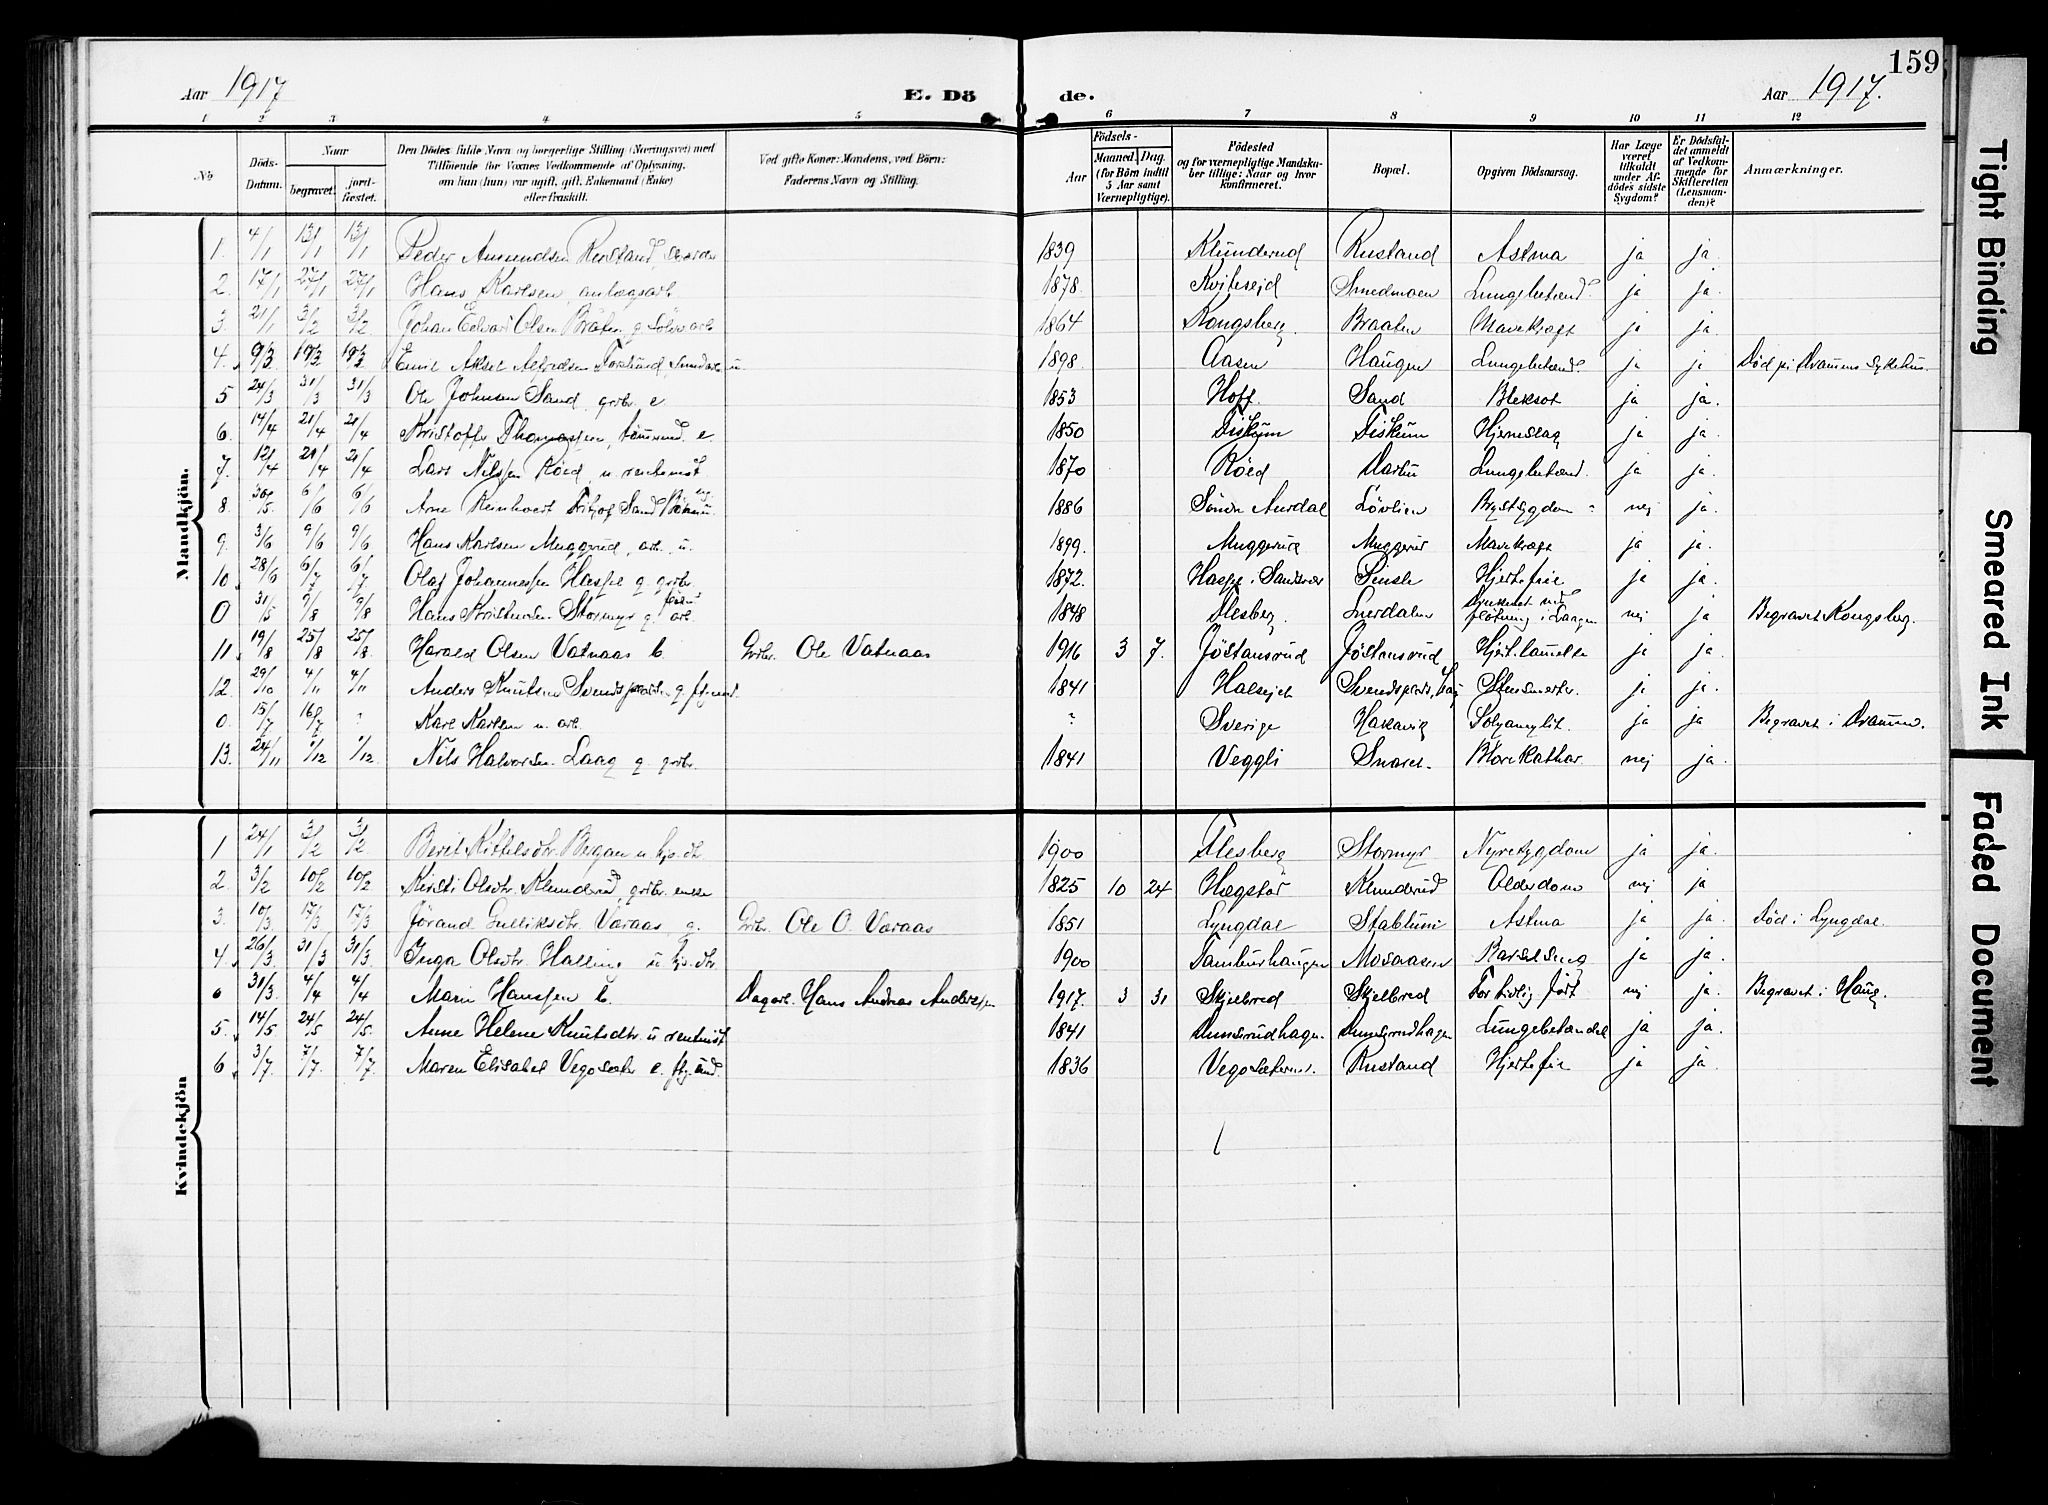 159
Aar 1917
E. Dö
de.
Aar 1917.
1 2 3 4 5 6 7 8 9 10 11 12
No
Döds-Datum.
Naar
begravet.
jordfæstet.
Den Dödes fulde Navn og borgerlige Stilling (Næringsvei) med
Tilföiende for Voxnes Vedkommende af Oplysning,
om han (hun) var ugift, gift, Enkemand (Enke)
eller fraskilt.
Ved gifte Koner: Mandens, ved Börn:
Faderens Navn og Stilling.
Födsels-
Aar
Maaned. Dag.
(for Börn indtil
5 Aar samt
Værnepligtige).
Födested
og for værnepligtige Mandsku-
ber tillige: Naar og hvor
konfirmeret.
Bopæl.
Opgiven Dödsaarsag.
Har Læge
været
tilkaldt
under Af-
dödes sidste
Sygdom?
Er Dödsfal-
det anmeldt
af Vedkom-
mende for
Skifteretten
(Lensman-
den)?
Anmærkninger.
Mandkjön.
1. 4/1 13/1 13/1 Peder Amundsen Rustand 1839 Klunderud Rustand Astma ja ja.
2. 17/1 27/1 27/1 Hans Karlsen, anlægsarb. 1878. Kviteseid Smedmoen Lungebetænd. ja ja.
3. 21/1 3/2 3/2 Johan Edvard Olsen Bråten g. Sölvv.arb. 1864 Kongsberg. Braaten Mavekræft ja ja.
4. 9/3 19/3 19/3 Emil Aksel Alfredsen u. 1898. Aasen Haugen Lungebetænd. ja ja Död på Dramens Sykehus.
5 24/3 31/3 31/3 Ole Johnsen Sand, grbr. e 1853 Hoff. Sand Bleksot ja ja.
6. 14/4 21/4 21/4 Kristoffer Thomassen, tömmermd. e. 1850 Fiskum Fiskum Hjerneslag ja ja.
7. 12/4 21/4 21/4 Lars Nilssen Röed, u. rentenist 1870 Röed Lungebetænd. ja ja.
8. 30/5 6/6 6/6 Arne Reinhardt Fritjof Sand 1886 Söndre Aurdal Lövlien Brystsygdom nej ja.
9. 3/6 9/6 9/6 Hans Karlsen Muggerud, arb. u. 1899. Muggerud Muggerud Mavekræft ja ja.
10. 28/6 6/7 6/7 Olaf Johannessen Haspe g. grbr. 1872. Haspe i Sandsvær Hjertefeil ja ja.
0 31/5 9/8 9/8 Hans Kristensen Stormyr g. arb. 1848 Flesberg. Druknet ved flötning i Laagen nej ja Begravet Kongsberg.
11. 19/8 25/8 25/8. Harald Olsen Vatnaas b. Grbr. Ole Vatnaas 1916 3 7. Jöstansrud Jöstansrud Hjertelammelse ja ja.
12. 29/10 4/11 4/11 Anders Knutsen g. 1841 ja ja.
0. 15/7 16/7 ? Karl Karlsen u. arb. ? Sverige Hakavig ja ja Begravet i Drammen.
13. 24/11 1/12 1/12. Nils Halvorsen Laag g. grbr. 1841 Veggli Snaret. nej ja.
Kvindekjön
1 24/1 3/2 3/2 Berit Kittelsdtr. Bergan u. hjs.dtr. 1900 Flesberg Stormyr Nyresygdom ja ja.
2. 3/2 10/2 10/2 Kirsti Olsdtr. Klunderud, grbr. enke 1825 10 24 Hægstad Klunderud Alderdom nej ja
3. 10/3 17/3 17/3 Jörand Gulliksdtr. Væraas, g. Grbr. Ole O. Væraas 1851 Lyngdal Astma ja ja. Död i Lyngdal.
4. 26/3 31/3 31/3 Inga Olsdtr. Halling u. hjs.dtr. 1900 Tamburhaugen Moaasen Barselseng ja ja.
0 31/3. 4/4 4/4 Marie Hanssen b. Dagarb. Hans Andreas Anderssen 1917. 3 31 Skjelbred Skjelbred For tidlig födt nej ja. Begravet i Haug.
5. 14/5 24/5 24/5. Anne Helene Knutsdtr. u. rentenist 1841 Lungebetændel ja ja.
6. 3/7. 7/7. 7/7. Maren Elisabet Vegosæter e. 1836 Vegosæteren. Rustand Hjertefeil ja ja.
Tight Binding
Smeared Ink
Faded Document